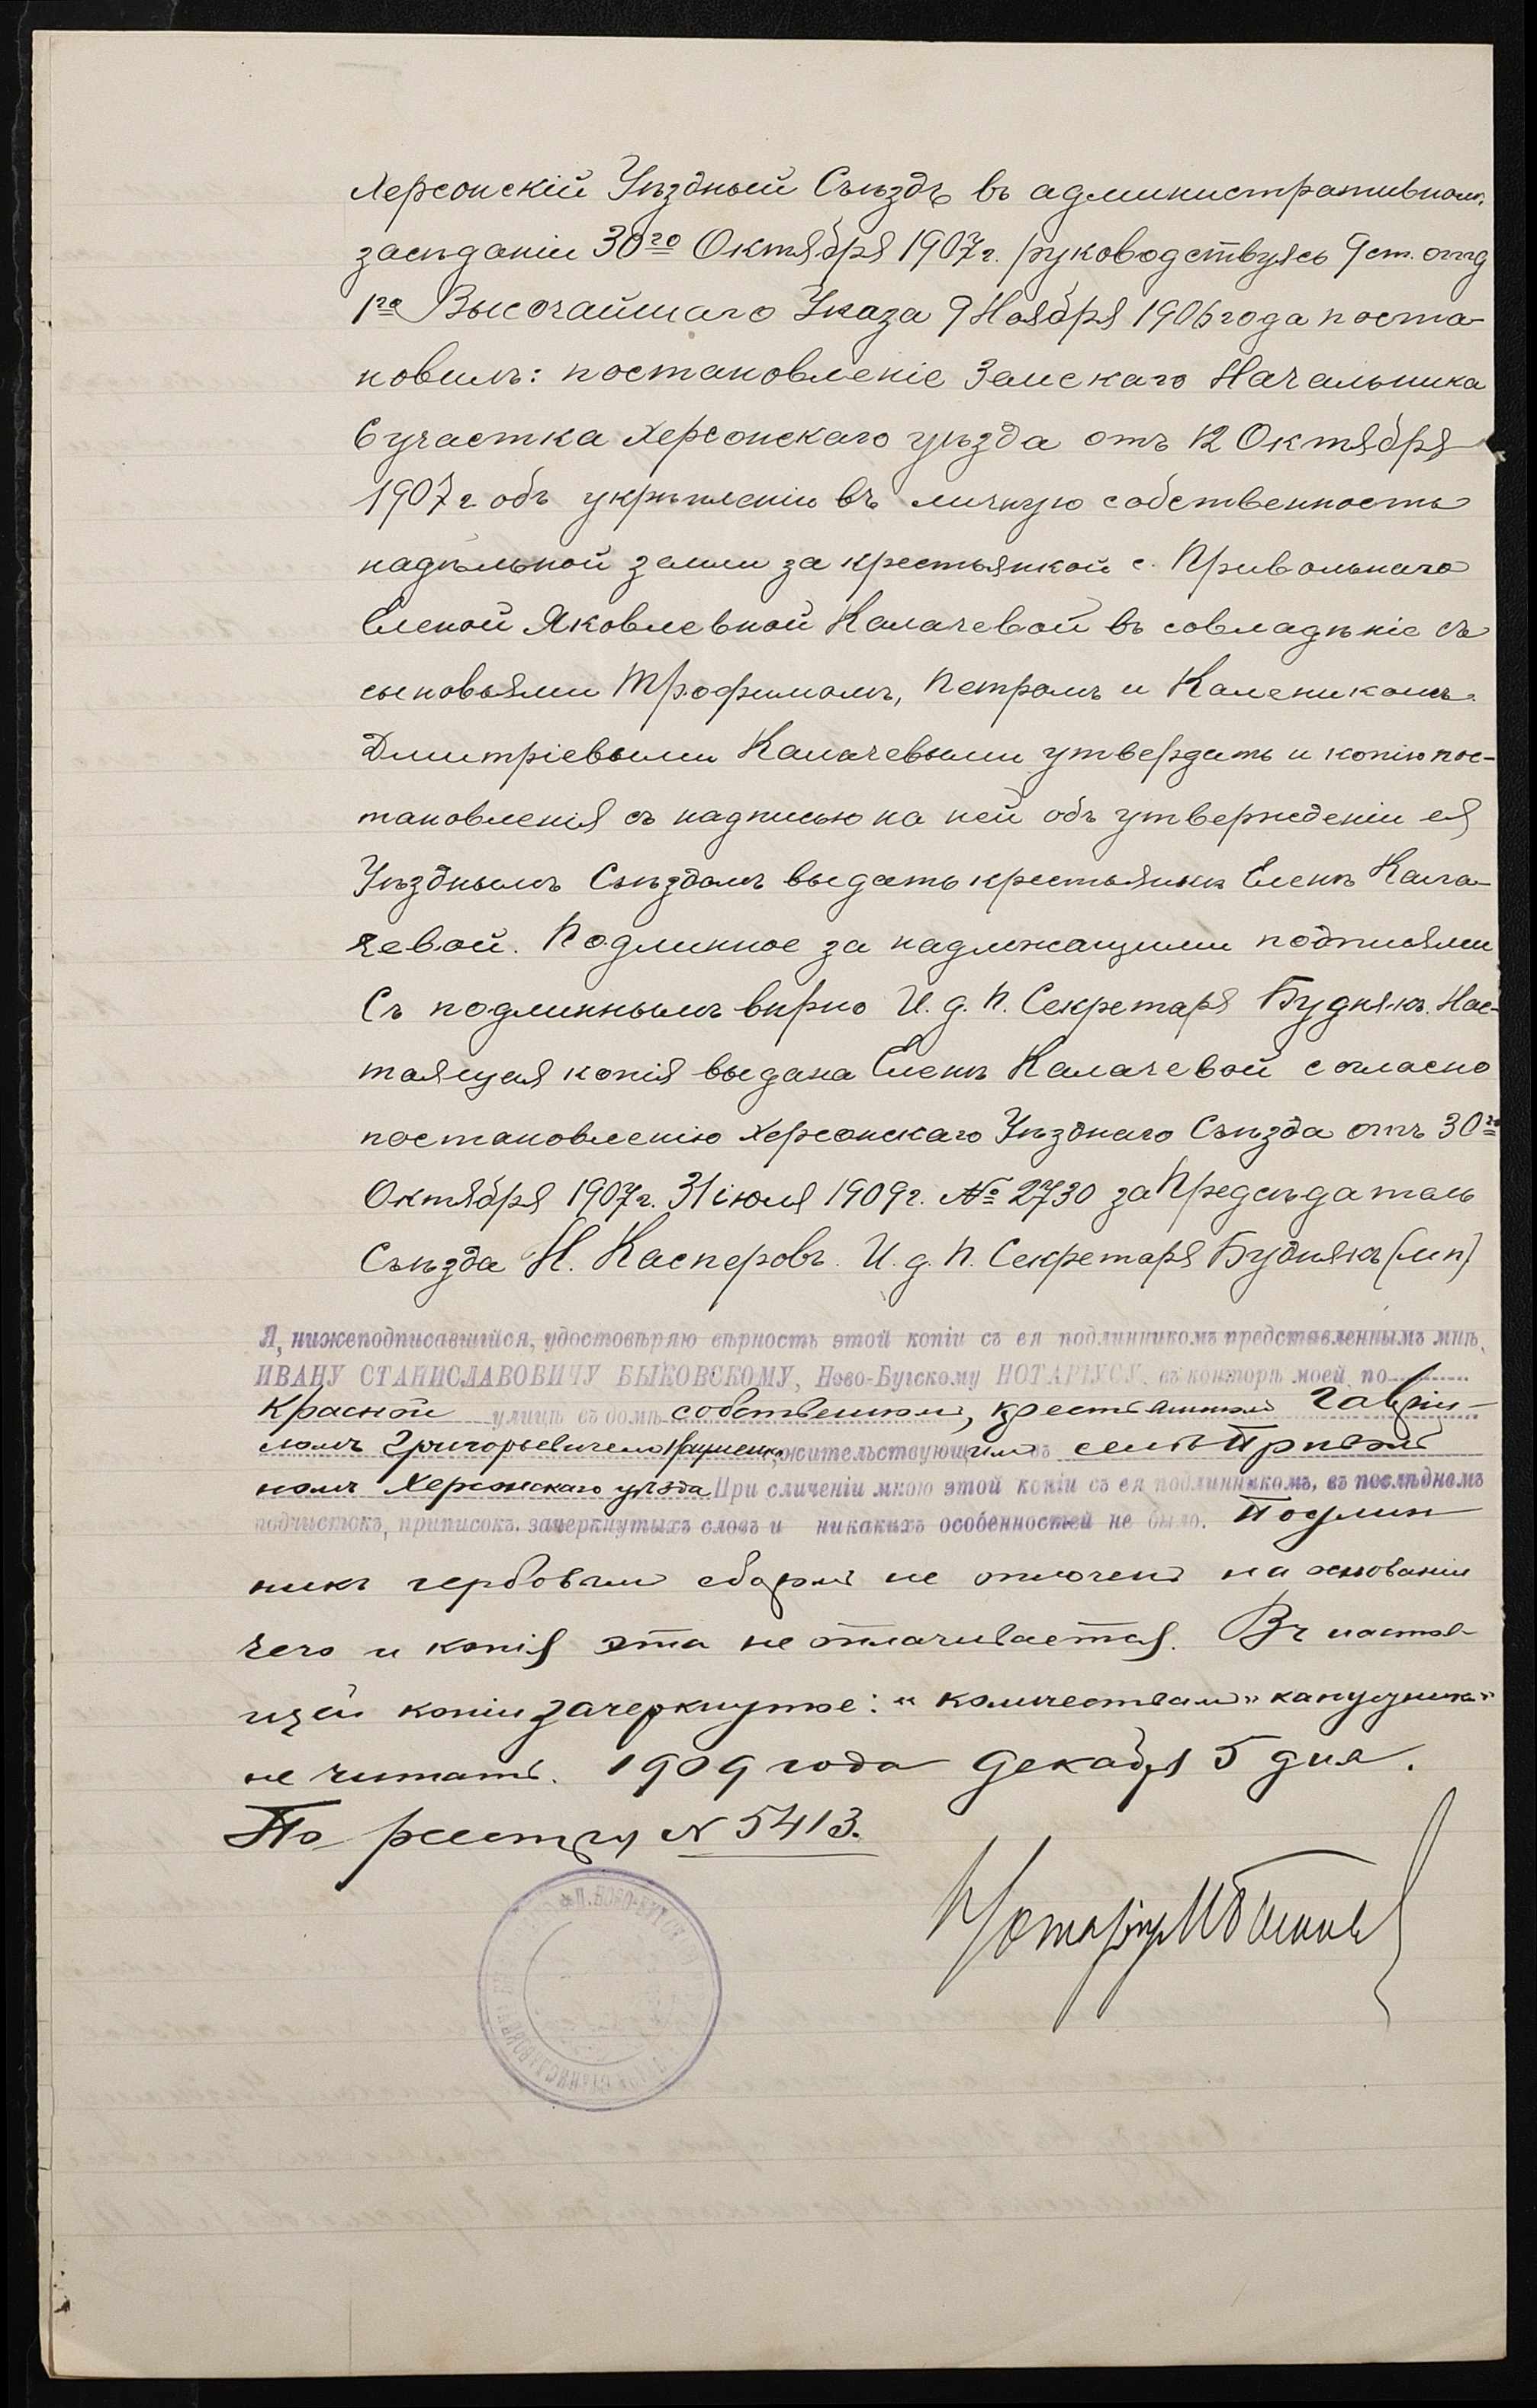 Херсонскій Уѣздный Съѣздъ въ административномъ
засѣданіи 30го Октября 1907 г. руководствуясь 9 ст. отд
1го Высочайшаго Указа 9 Ноября 1906 года поста-
новилъ: постановленіе Земскаго Начальника
6 участка Херсонскаго уѣзда отъ 12 Октября
1907 г. объ укрѣпленіи въ личную собственность
надѣльной земли за крестьянкой с. Привольнаго
Еленой Яковлевной Калачевой въ совладѣніе съ
сыновьями Трофимомъ, Петромъ и Каленикомъ
Дмитріевыми Калачевыми утвердить и копію пос-
тановленія съ надписью на ней объ утвержденіи ея
Уѣзднымъ Съѣздомъ выдать крестьянкѣ Еленѣ Кала-
чевой. Подлинное за надлежащими подписями
Съ подлиннымъ вѣрно И. д. П. Секретаря Буднякъ. Нас-
тоящая копія выдана Еленѣ Калачевой согласно
постановленію Херсонскаго Уѣзднаго Съѣзда отъ 30го
Октября 1907 г. 31 іюля 1909 г. № 2730 за Предсѣдатель
Съѣзда Н. Касперовъ. И. д. П. Секретаря Буднякъ (мп)
Я, нижеподписавшійся, удостовѣряю вѣрность этой копіи съ ея подлинникомъ представленнымъ мнѣ,
ИВАНУ СТАНИСЛАВОВИЧУ БЫКОВСКОМУ, Ново-Бугскому НОТАРІУСУ, въ конторѣ моей, по
Красной улицѣ въ домѣ собственномъ, крестьяниномъ Гаврiи-
ломъ Григорьевичемъ жительствующимъ въ селѣ Приволь
номъ Херсонскаго уѣзда. При сличеніи мною этой копіи съ ея подлинникомъ, въ послѣднемъ
подчистокъ, приписокъ, зачеркнутыхъ словъ и никакихъ особенностей не было. Подлин
никъ гербовымъ сборомъ не оплаченъ на основаніи
чего и копія эта не оплачивается. Въ настоя-
щей копіи зачеркнутое: „количествомъ"
не читать. 1909 года Декабря 5 дня.
По реестру N 5413.
Нотаріусъ